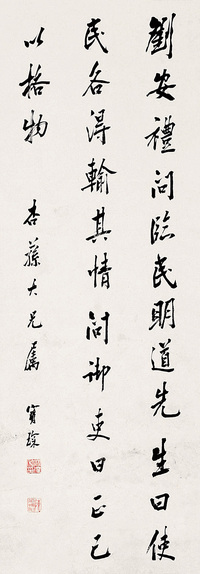 劉安禮問臨民明道先生曰使
民各得輸其情問御吏曰正己
以格物
杏蓀大兄屬 寶琛